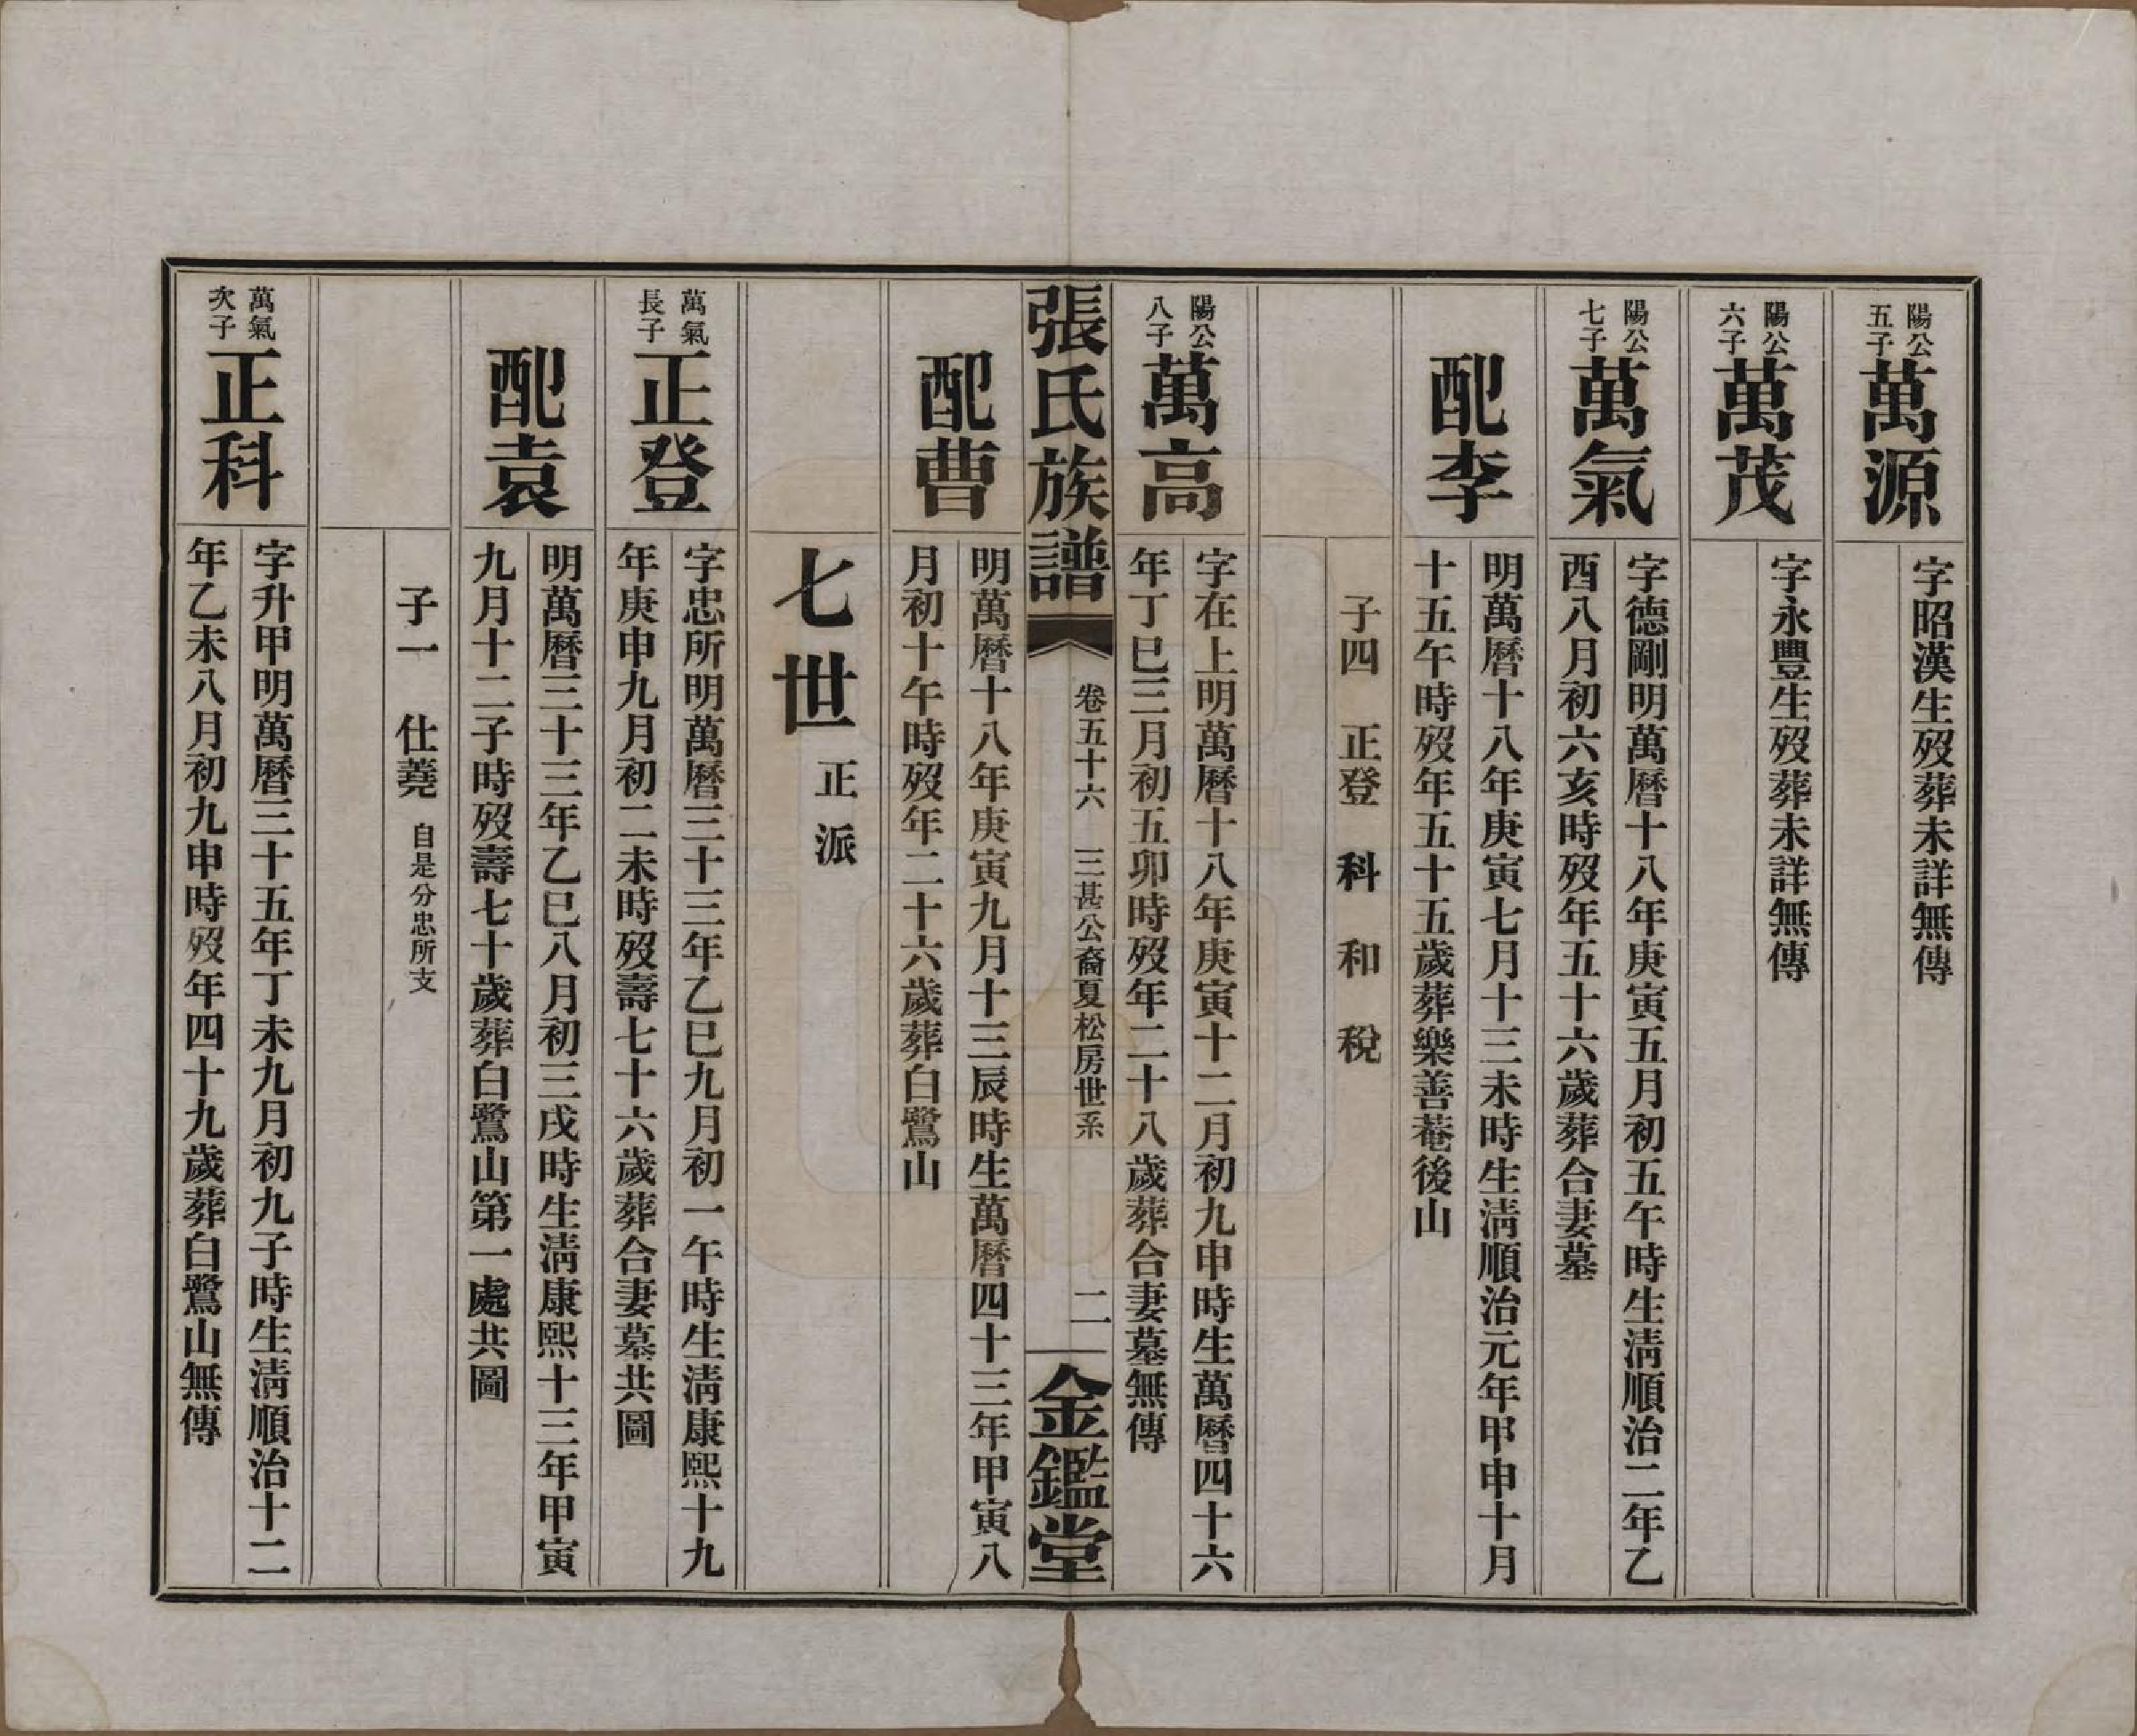 陽公
五子
萬源
字昭漢生歿葬未詳無傳
陽公
六子
萬茂
字永豐生歿葬未詳無傳
陽公
七子
萬氣
字德剛明萬曆十八年庚寅五月初五午時生淸順治二年乙
酉八月初六亥時歿年五十六歲葬合妻墓
配李
明萬曆十八年庚寅七月十三未時生淸順治元年甲申十月
十五午時歿年五十五歲葬樂善菴後山
子四　正登　科　和　稅
陽公
八子
萬高
字在上明萬曆十八年庚寅十二月初九申時生萬曆四十六
年丁巳三月初五卯時歿年二十八歲葬合妻墓無傳
張氏族譜
卷五十六　三甚公裔夏松房世系
二
金鑑堂
配曹
明萬曆十八年庚寅九月十三辰時生萬曆四十三年甲寅八
月初十午時歿年二十六歲葬白鷺山
七世　正派
萬氣
長子
正登
字忠所明萬曆三十三年乙巳九月初一午時生淸康熙十九
年庚申九月初二未時歿壽七十六歲葬合妻墓共圖
配袁
明萬曆三十三年乙巳八月初三戌時生淸康熙十三年甲寅
九月十二子時歿壽七十歲葬白鷺山第一處共圖
子一　仕蕘　自是分忠所支
萬氣
次子
正科
字升甲明萬曆三十五年丁未九月初九子時生淸順治十二
年乙未八月初九申時歿年四十九歲葬白鷺山無傳